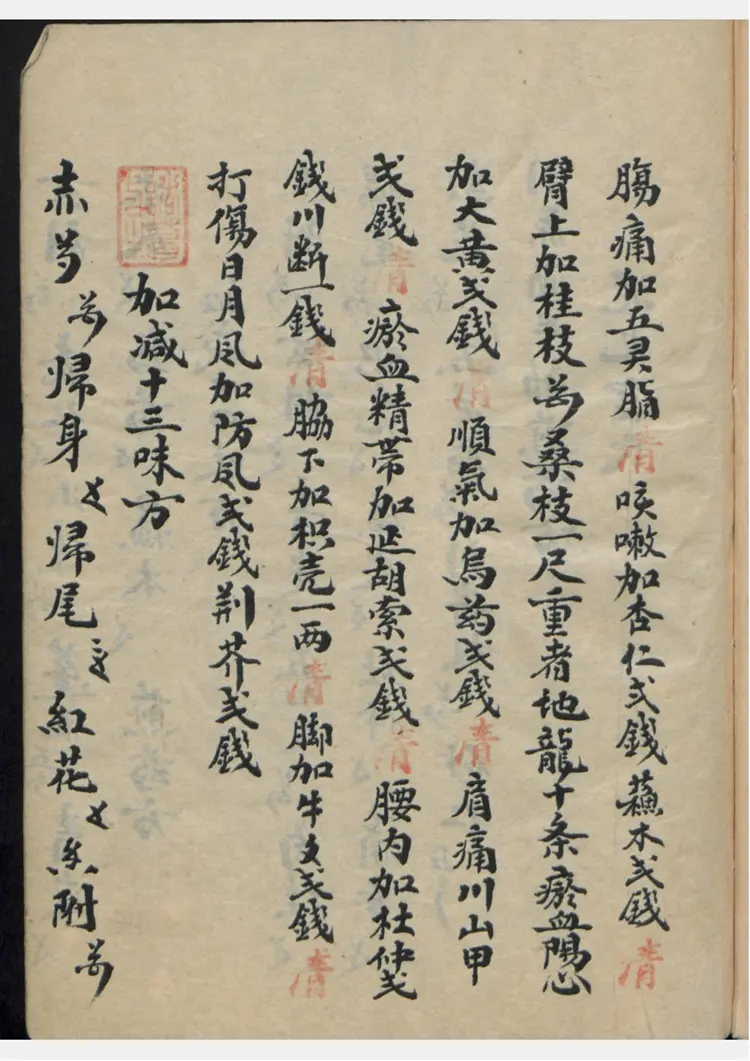 腸痛加五灵脂清咳嗽加杏仁弍錢蘓木弍錢清
臂上加桂枝桑枝一尺重者地龍十条瘀血
加大黃弍錢清順氣加烏药弍錢清肩痛川山甲
弍錢清瘀血精帯加延胡索弍錢清腰内加杜仲弍
錢川断一錢清脇下加枳壳一两清脚加牛夂弍錢清
打傷日月凨加防凨弍錢荆芥弍錢
加减十三味方
赤芍歸身歸尾紅花附